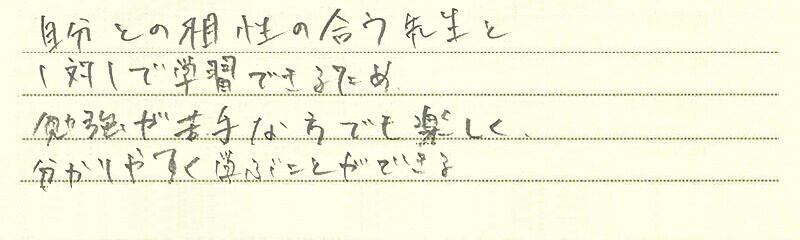 自分との相性の合う先生と
1対1で学習できるため
勉強が苦手な方でも楽しく、
分かりやすく学ぶことができる